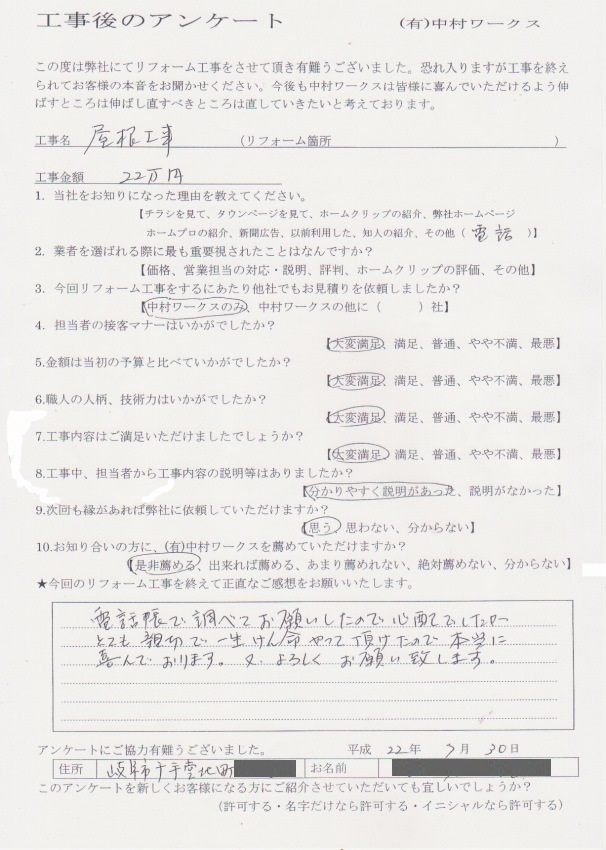 工事後のアンケート (有)中村ワークス
この度は弊社にてリフォーム工事をさせて頂き有難うございました。恐れ入りますが工事を終え
られてお客様の本音をお聞かせください。今後も中村ワークスは皆様に喜んでいただけるよう伸
ばすところは伸ばし直すべきところは直していきたいと考えております。
工事名 屋根工事 (リフォーム箇所 )
工事金額 22万円
1. 当社をお知りになった理由を教えてください。
【チラシを見て、タウンページを見て、ホームクリップの紹介、弊社ホームページ
ホームプロの紹介、新聞広告、以前利用した、知人の紹介、その他( 電話 )】
2. 業者を選ばれる際に最も重要視されたことはなんですか？
【価格、営業担当の対応・説明、評判、ホームクリップの評価、その他】
3. 今回リフォーム工事をするにあたり他社でもお見積りを依頼しましたか？
【中村ワークスのみ、中村ワークスの他に( )社】
4. 担当者の接客マナーはいかがでしたか？
【大変満足、満足、普通、やや不満、最悪】
5.金額は当初の予算と比べていかがでしたか？
【大変満足、満足、普通、やや不満、最悪】
6.職人の人柄、技術力はいかがでしたか？
【大変満足、満足、普通、やや不満、最悪】
7.工事内容はご満足いただけましたでしょうか？
【大変満足、満足、普通、やや不満、最悪】
8.工事中、担当者から工事内容の説明等はありましたか？
【分かりやすく説明があった、説明がなかった】
9.次回も縁があれば弊社に依頼していただけますか？
【思う、思わない、分からない】
10.お知り合いの方に、(有)中村ワークスを薦めていただけますか？
【是非薦める、出来れば薦める、あまり薦めれない、絶対薦めない、分からない】
★今回のリフォーム工事を終えて正直なご感想をお願いいたします。
電話帳で調べてお願いしたので心配でしたが
とても親切で一生けん命やって頂けたので本当に
喜んでおります。又よろしくお願い致します。
アンケートにご協力有難うございました。 平成 22年 7月 30日
住所 岐阜市千手堂北町 お名前
このアンケートを新しくお客様になる方にご紹介させていただいても宜しいでしょうか？
(許可する・名字だけなら許可する・イニシャルなら許可する)